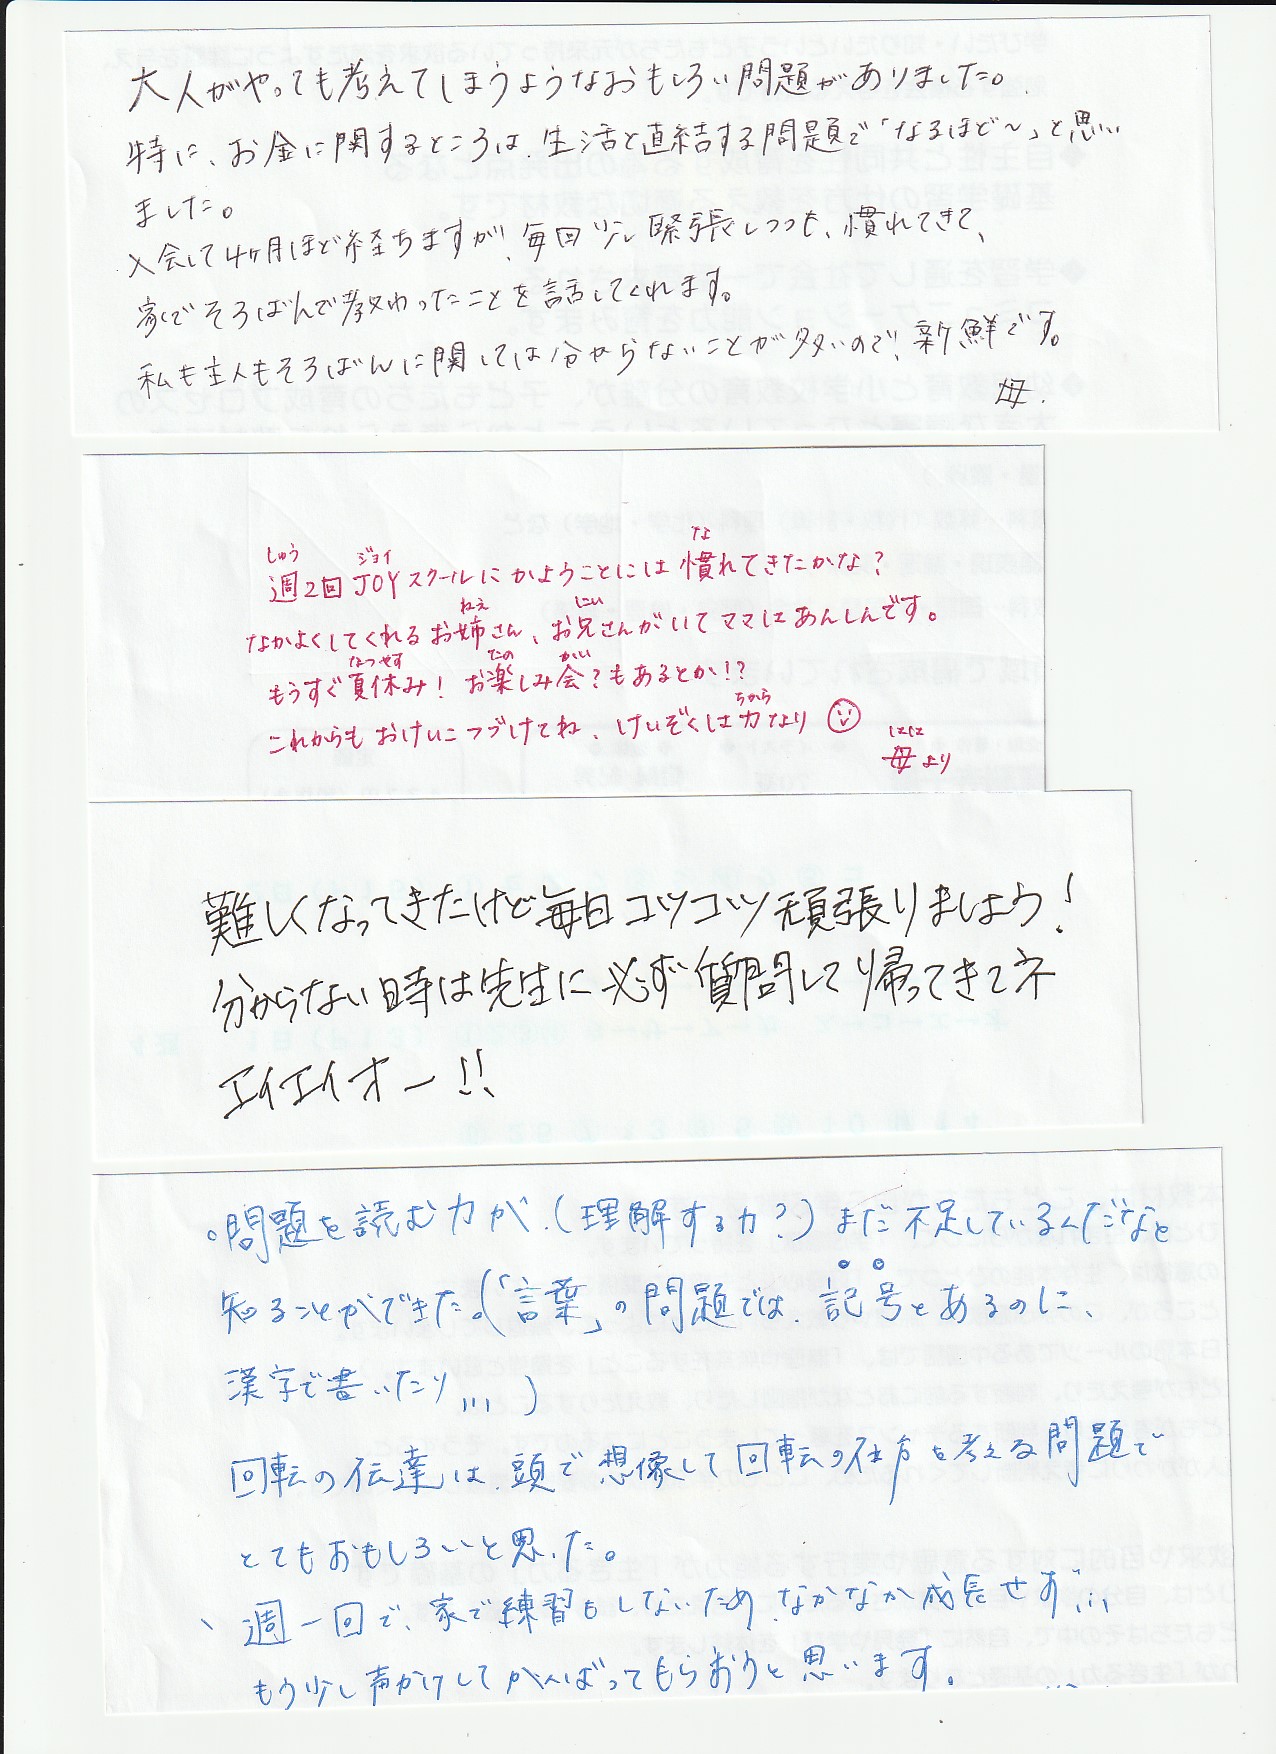 大人がやっても考えてしまうようなおもしろい問題がありました。
特に、お金に関するところは、生活と直結する問題で「なるほど～」と思い
ました。
入会して4ヶ月ほど経ちますが、毎回少し緊張しつつも、慣れてきて、
家でそろばんで教わったことを話してくれます。
私も主人もそろばんに関しては分からないことが多いので、新鮮です。
母.
しゅう ジョイ な
週2回JOYスクールにかようことには慣れてきたかな?
ねえ にい
なかよくしてくれるお姉さん、お兄さんがいてママはあんしんです。
なつやす たの かい
もうすぐ夏休み! お楽しみ会?もあるとか!?
ちから
これからもおけいこつづけてね、けいぞくは力なり
はは
母より
難しくなってきたけど毎日コツコツ頑張りましょう!
分からない時は先生に必ず質問して帰ってきてネ
エイエイオー!!
。問題を読む力が、(理解する力?)まだ不足しているんだなと
知ることができた。(「言葉」の問題では、記号とあるのに、
漢字で書いたり...)
回転の伝達は、頭で想像して回転の仕方を考える問題で
とてもおもしろいと思った。
、週一回で、家で練習もしないため、なかなか成長せず...
もう少し声かけしてがんばってもらおうと思います。